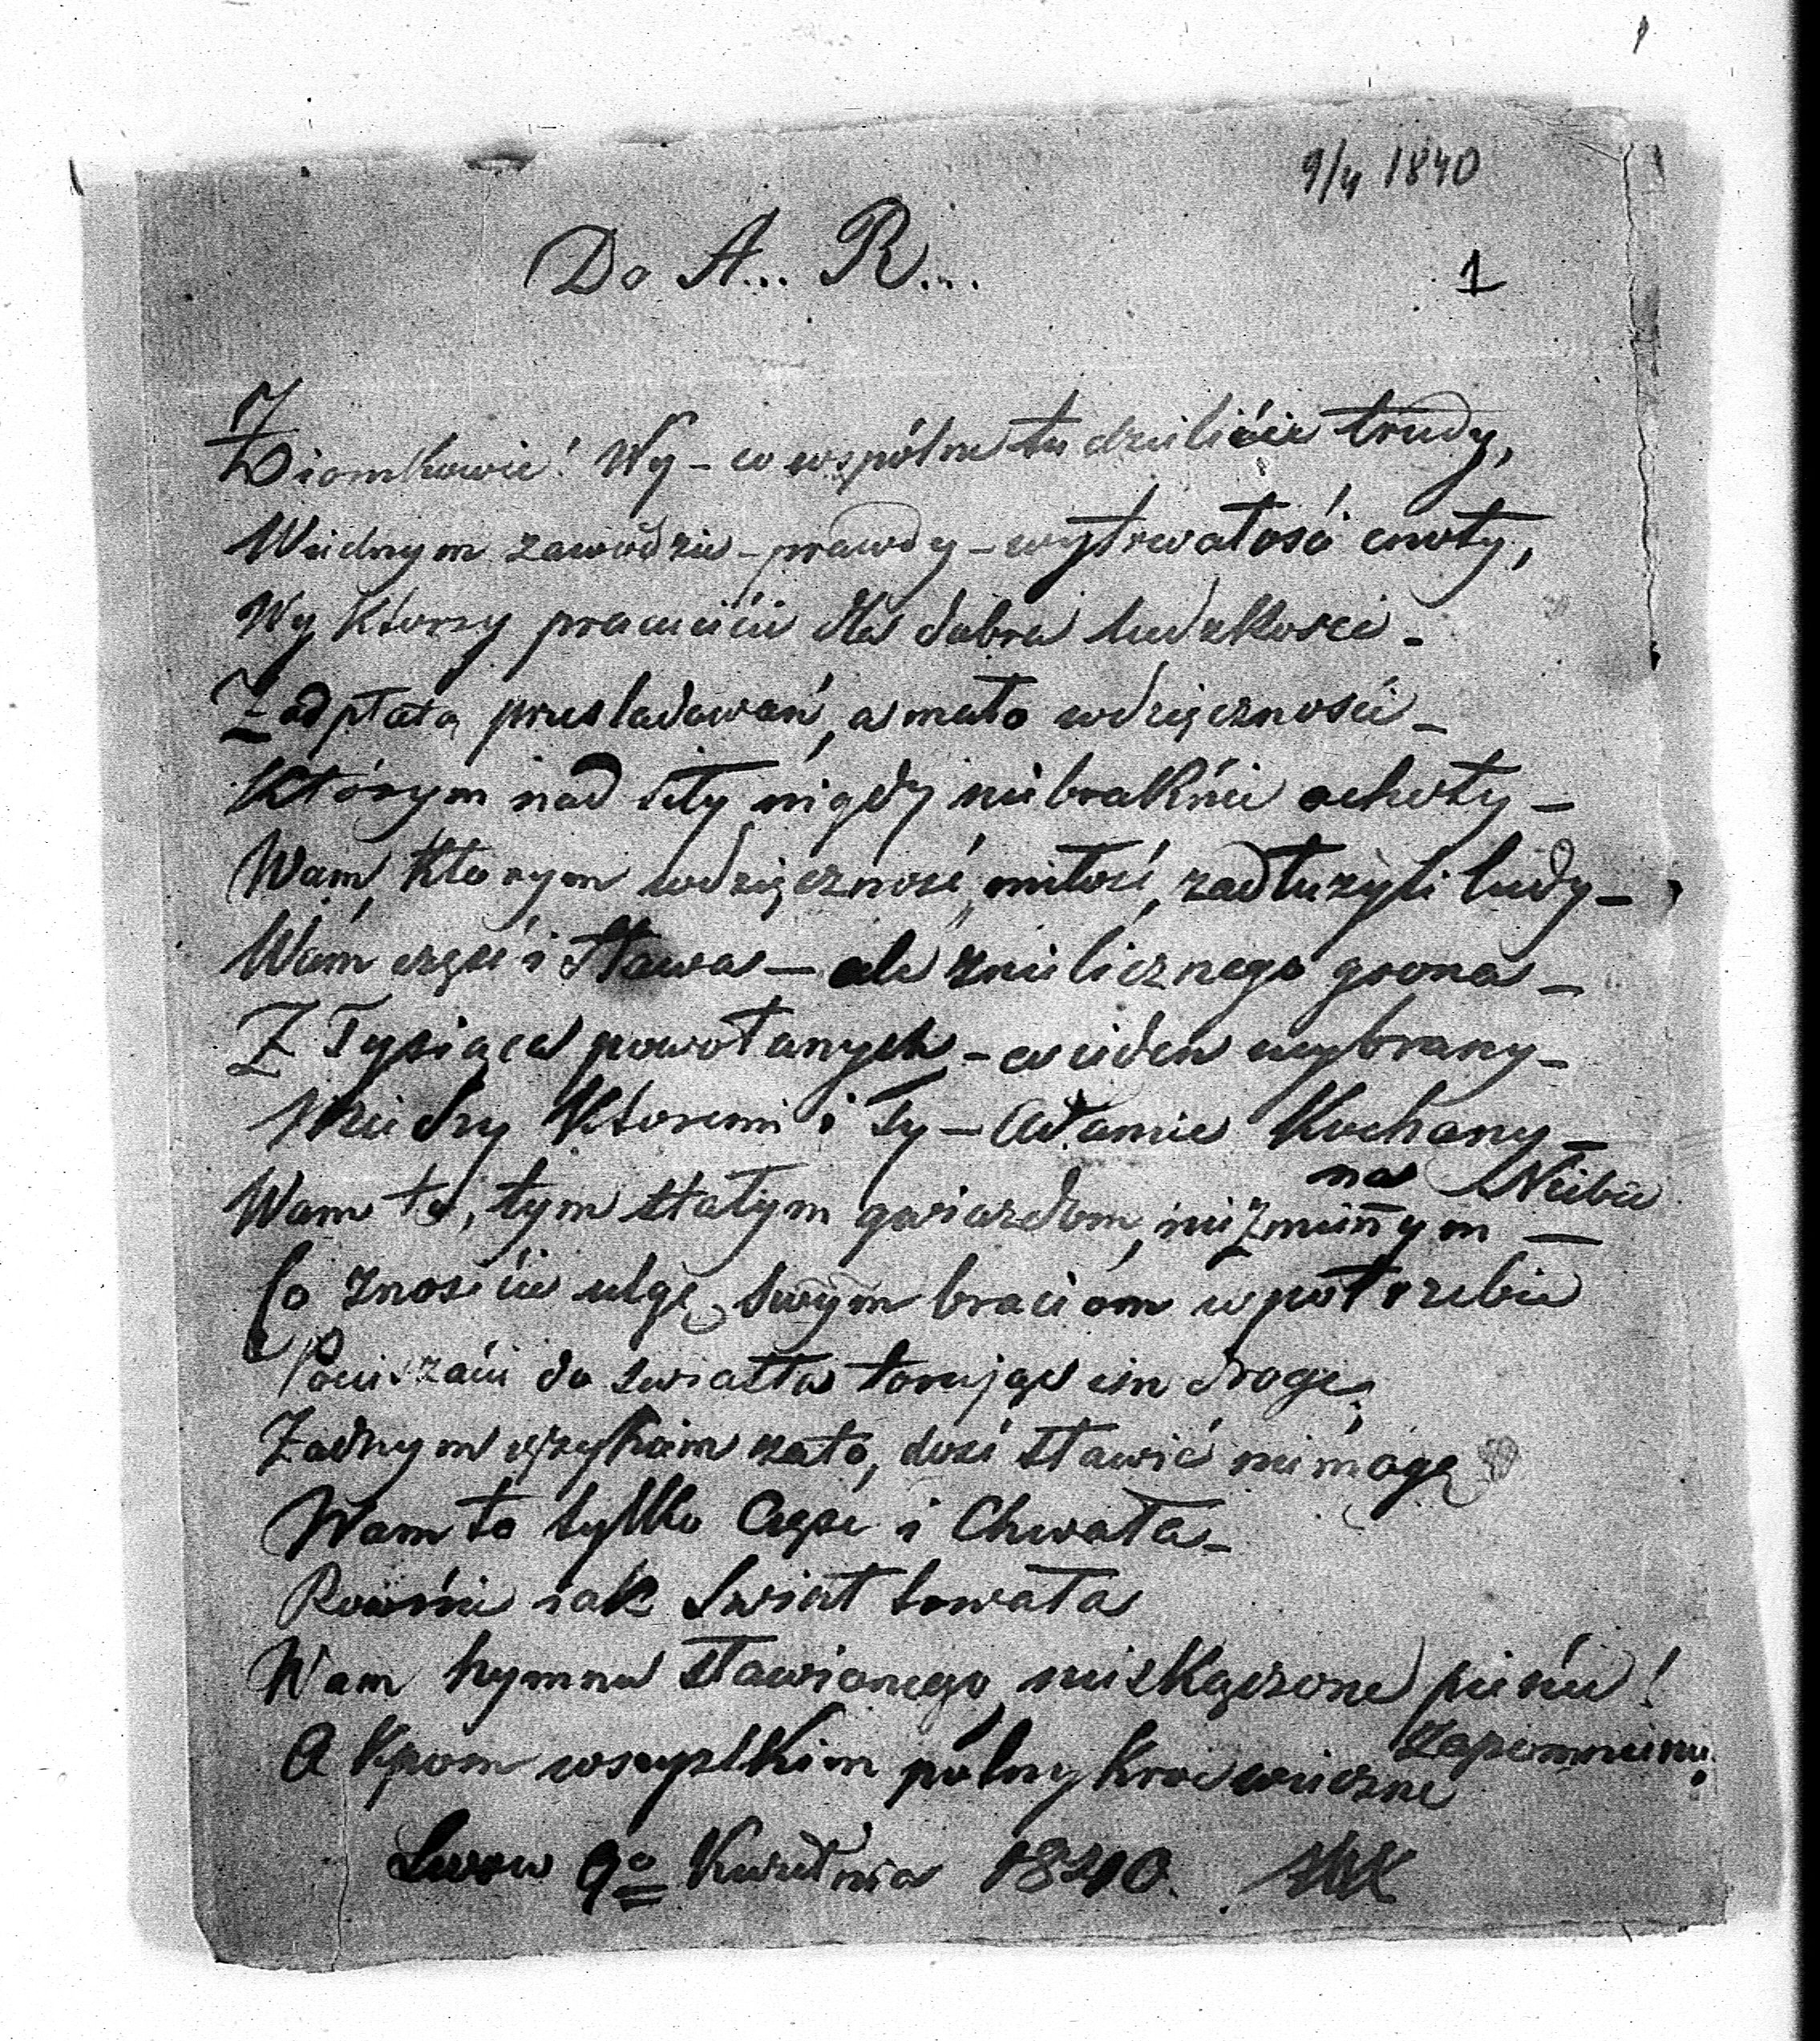 9/4 1840
Do A... R...
1
Ziomkowie! Wy – co wspólne tu dzielicie trudy,
W iednym zawodzie – prawdy – wytrwałość cnoty,
Wy Ktorzy pracuiecie dla dobra ludzkosci –
Za odpłatą prześladowań, a mało wdzięczności –
Którym nad siły nigdy niebraknie ochoty –
Wam, Ktorym wdzięczność, miłość, zadłużyli ludy –
Wam cześć i sława – ale z nielicznego grona –
Z Tysiąca powołanych – co ieden wybrany –
Między Ktoremi i Ty – Adamie Kochany –
Wam to, tym stałym gwiazdom, niezmieñym – na Niebie
Co znosicie ulgę swym braciom w potrzebie
do swiatła torując im drogę;
Zadnym ięzykiem zato, dosć sławić niemogę
Wam to tylko Cześć i Chwała –
Rownie iak Swiat
Wam hymnu sławionego nieskączone pienie!
A wszystkim wieczne zapomnienie.
Lwow 9go Kwietnia 1840.